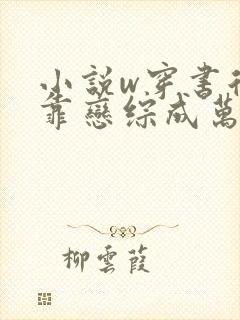 小説w穿書後
靠戀綜成萬
柳雲葭